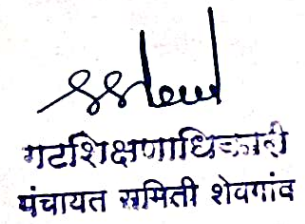 गटशिक्षणाधिकारी
पंचायत समिती शेवगांव